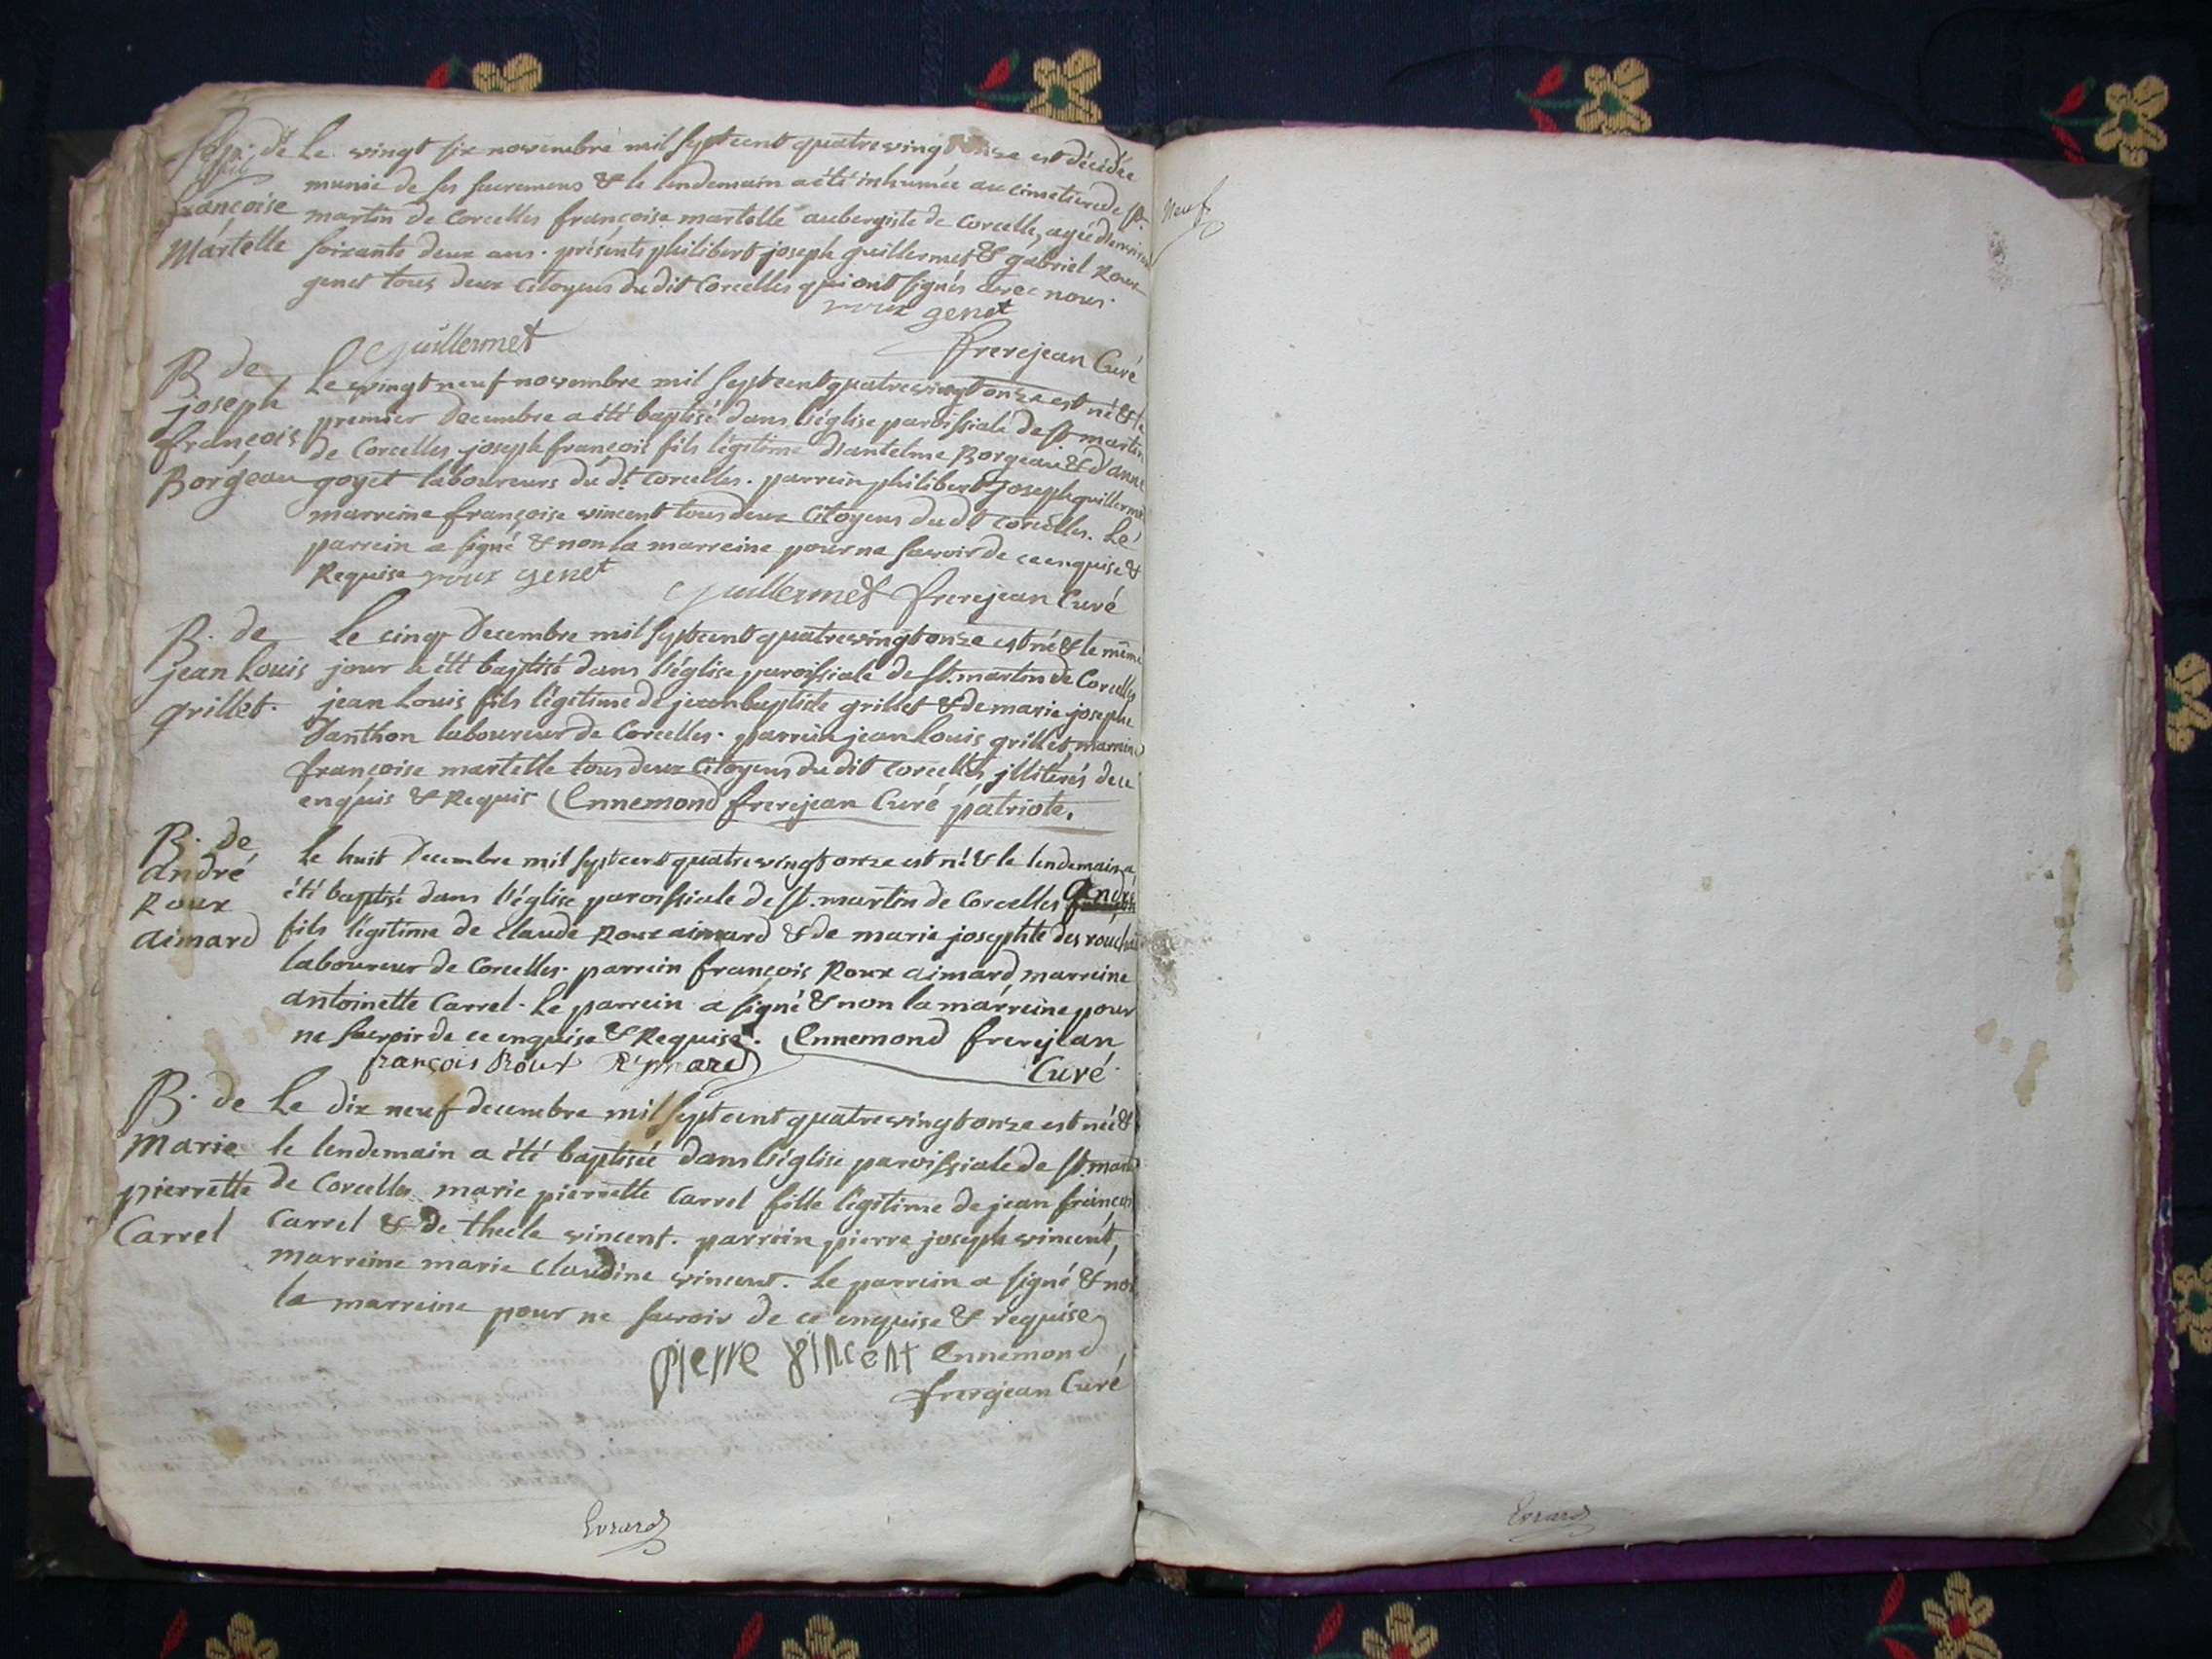 Sép. de
françoise
Martelle
Le vingt six novembre mil sept cent quatre vingt onze est décédée
munie de ses sacremens & le lendemain a été inhumée au cimetiere de st.
martin de Corcelles françoise martelle aubergiste de Corcelles, agée d'environ
soixante deux ans. présents philibert joseph guillermet & gabriel Roux
genet tous deux citoyens du dit Corcelles qui ont signés avec nous.
roux genet
Guillermet
frerejean Curé
B. de
joseph
françois
Borgeau
Le vingt neuf novembre mil sept cent quatre vingt onze est né & le
premier decembre a été baptisé dans l'église paroissiale de st martin
de Corcelles joseph françois fils légitime d'antelme Borgeau & d'anne
goyet laboureurs du dt. Corcelles. parrein philibert joseph guillermet
marreine françoise vincent tous deux citoyens du dt Corcelles. Le
parrein a signé & non la marreine pour ne savoir de ce enquise &
Requise roux genet
Guillermet frerejean Curé
B. de
jean Louis
grillet.
Le cinq Decembre mil sept cent quatre vingt onze est né & le même
jour a été baptisé dans l'église paroissiale de st. martin de Corcelles
jean Louis fils légitime de jean baptiste grillet & de marie josephe
Danthon laboureur de Corcelles. parrein jean Louis grillet, marreine
françoise martelle tous deux citoyens du dit Corcelles, illiterés de ce
enquis & Requis Ennemond frerejean Curé patriote.
B. de
andré
Roux
aimard
Le huit Decembre mil sept cent quatre vingt onze est né & le lendemain a
été baptisé dans l'église paroissiale de st. martin de Corcelles André
fils légitime de claude Roux aimard & de marie josephte des
laboureur de Corcelles. parrein françois Roux aimard, marreine
antoinette Carrel. Le parrein a signé & non la marreine pour
ne savoir de ce enquise & Requise. Ennemond frerejean
françois Roux
Curé
B. de
Marie
pierrette
Carrel
Le dix neuf decembre mil sept cent quatre vingt onze est née &
le lendemain a été baptisée dans l'église paroissiale de st. martin
de Corcelles marie pierrette Carrel fille légitime de jean françois
Carrel & de thecle vincent. parrein pierre joseph vincent,
marreine marie claudine vincent. Le parrein a signé & non
la marreine pour ne savoir de ce enquise & requise
pierre vincent Ennemond
frerejean Curé
Evrard
Neuf
Evrard